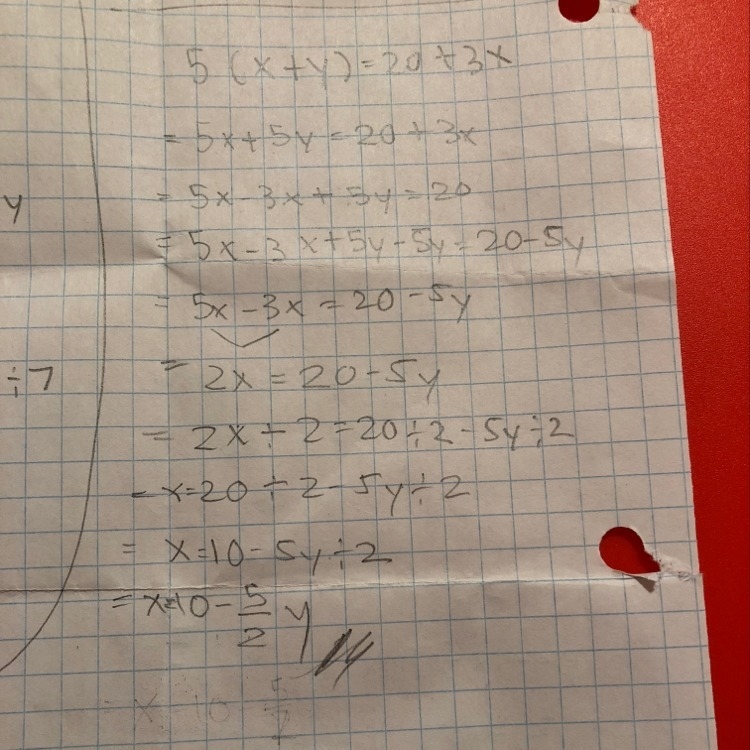 5 (x+y) = 20 + 3x
= 5x + 5y = 20 + 3x
= 5x - 3x + 5y = 20
y
= 5x - 3x + 5y - 5y = 20 - 5y
= 5x - 3x = 20 - 5y
÷7
= 2x = 20 - 5y
= 2x ÷ 2 = 20 ÷ 2 - 5y ÷ 2
= x = 20 ÷ 2 - 5y ÷ 2
= x = 10 - 5y ÷ 2
= x = 10 - 5/2 y